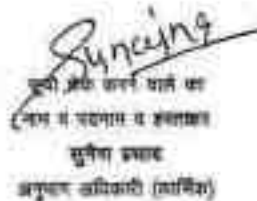 सूची जांच करने वाले का
नाम व पदनाम व हस्ताक्षर
सुनैना प्रसाद
अनुभाग अधिकारी (कार्मिक)